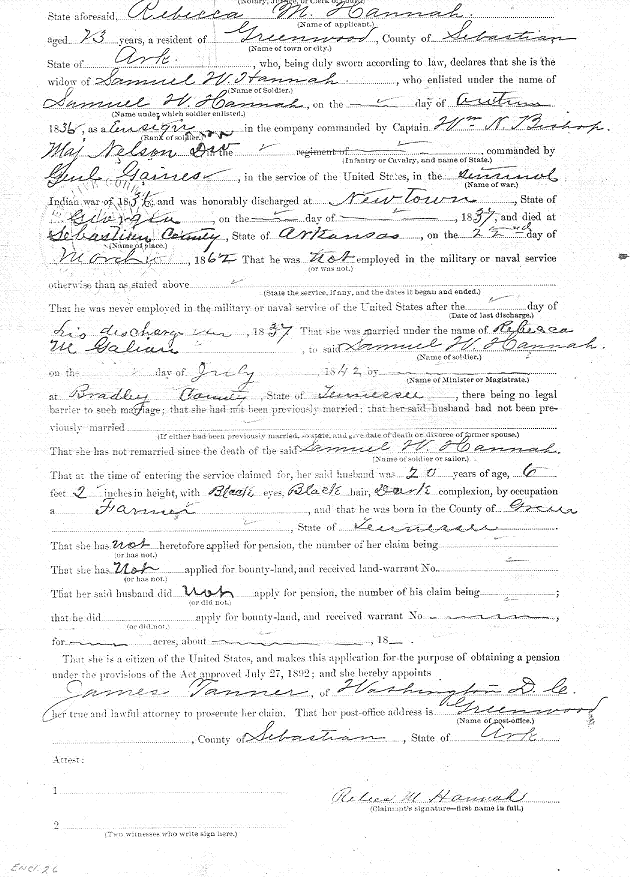 State aforesaid, Rebecca M. Hannah.
(Name of applicant.)
aged 73 years, a resident of Greenwood, County of Sebastian
(Name of town or city.)
State of Ark., who, being duly sworn according to law, declares that she is the
widow of Samuel W. Hannah, who enlisted under the name of
(Name of Soldier.)
Samuel W. Hannah, on the day of
(Name under which soldier enlisted.)
1836, as a Ensign in the company commanded by Captain Wm N. Bishop.
(Rank of soldier.)
Maj Nelson in the regiment of, commanded by
(Infantry or Cavalry, and name of State.)
Gaines, in the service of the United States, in the
(Name of war.)
Indian war of 1836, and was honorably discharged at New town, State of
Georgia, on the day of, 1837, and died at
Sebastian County, State of Arkansas, on the 22nd day of
(Name of place.)
March 1862 That he was not employed in the military or naval service
(or was not.)
otherwise than as stated above
(State the service, if any, and the dates it began and ended.)
That he was never employed in the military or naval service of the United States after the day of
(Date of last discharge.)
his discharge 1837 That she was married under the name of Rebecca
M, to said Samuel W. Hannah.
(Name of soldier.)
on the day of July 1842, by
(Name of Minister or Magistrate.)
at Bradley County, State of Tennessee, there being no legal
barrier to such marriage; that she had not been previously married; that her said husband had not been pre-
viously married
(If either had been previously married, so state, and give date of death or divorce of former spouse.)
That she has not remarried since the death of the said Samuel W. Hannah
(Name of soldier or sailor.)
That at the time of entering the service claimed for, her said husband was 20 years of age, 6
feet 2 inches in height, with Black eyes, Black hair, Dark complexion, by occupation
a Farmer, and that he was born in the County of
, State of Tennessee
That she has not heretofore applied for pension, the number of her claim being
(or has not.)
That she has Not applied for bounty-land, and received land-warrant No.
(or has not.)
That her said husband did Not apply for pension, the number of his claim being ;
(or did not.)
that he did apply for bounty-land, and received warrant No ,
(or did not.)
for acres, about , 18 .
That she is a citizen of the United States, and makes this application for the purpose of obtaining a pension
under the provisions of the Act approved July 27, 1892; and she hereby appoints
James Tanner, of Washington D. C.
her true and lawful attorney to prosecute her claim. That her post-office address is Greenwood
(Name of post-office.)
, County of Sebastian, State of Ark
Attest:
1
Rebeca M Hannah
(Claimant's signature—first name in full.)
2
(Two witnesses who write sign here.)
Encl. 26